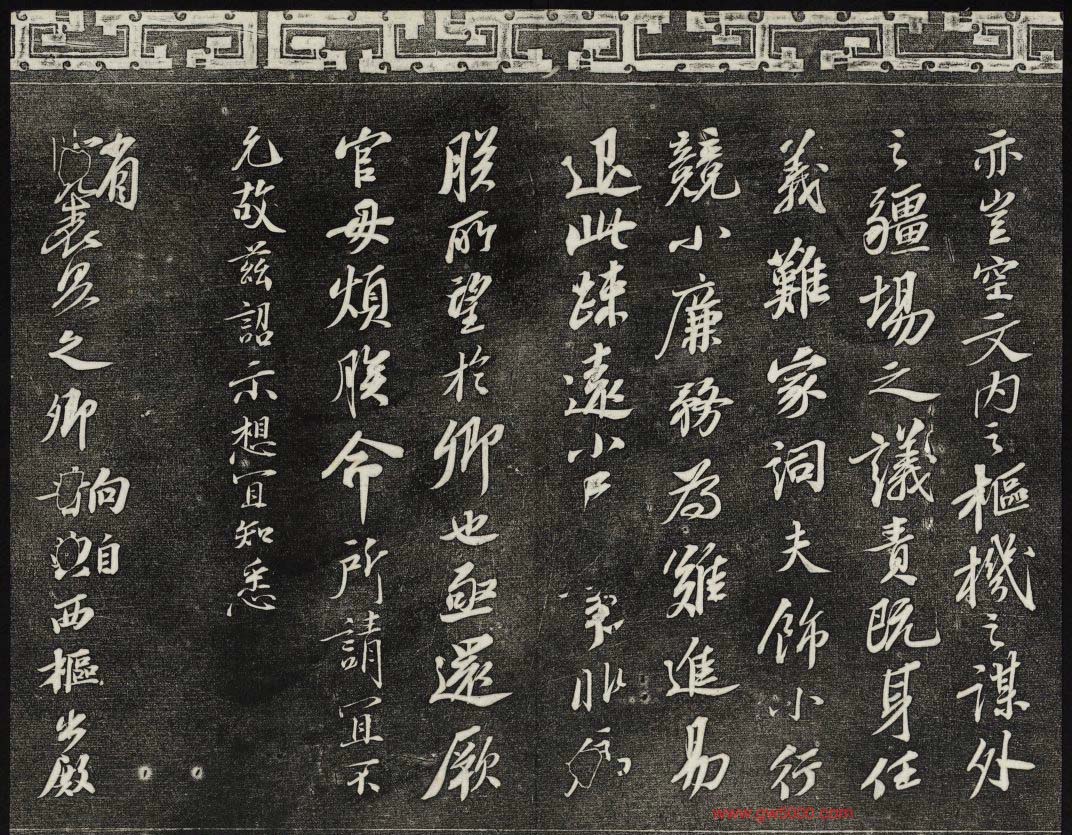 亦豈空文内之樞機之謀外
之疆場之議責既身任
義難家詞夫飾小行
競小廉務為難進易
退此踈遠小臣事非
朕所望於卿也亟還厥
官毋煩朕命所請宜不
允故茲詔示想宜知悉
省表具之卿向自西樞出殿